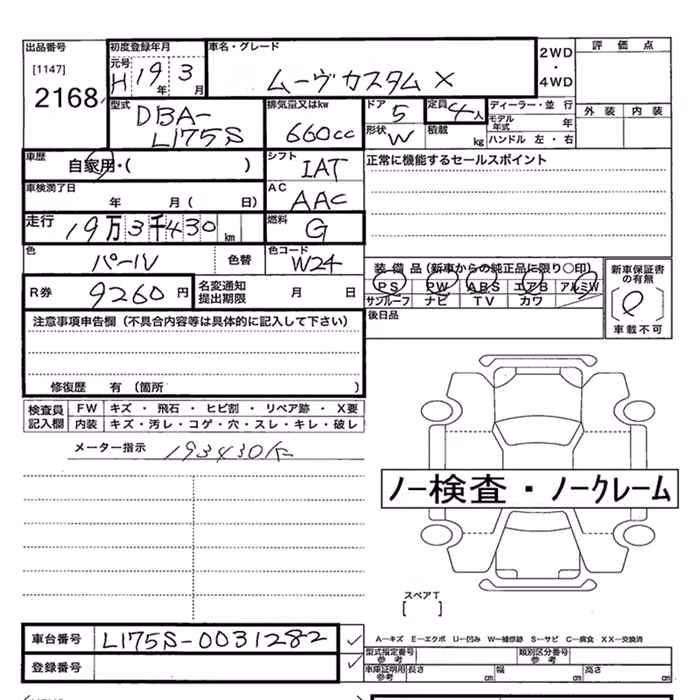 出品番号
[1147]
2168
初度登録年月
元号
H 19年 3月
車名・グレード
ムーヴカスタム X
2WD
・
4WD
評価点
外装 内装
型式
DBA-
L175S
排気量又はkw
660cc
ドア
5
定員
4人
形状
W
積載
kg
ディーラー・並 行
モデル
年式 年
ハンドル 左・右
車歴
自家用・( )
シフト
IAT
正常に機能するセールスポイント
車検満了日
年 月( 日)
AC
AAC
走行
19万3千430km
燃料
G
色
パール 色替
色コード
W24
R券
9260円
名変通知
提出期限
月 日
装備品(新車からの純正品に限り○印)
PS PW ABS エアB アルミW
サンルーフ ナビ TV カワ
後日品
新車保証書
の有無
車載不可
注意事項申告欄(不具合内容等は具体的に記入して下さい)
修復歴 有(箇所 )
検査員
記入欄
FW キズ・飛石・ヒビ割・リペア跡・X要
内装 キズ・汚レ・コゲ・穴・スレ・キレ・破レ
メーター指示 193430K
ノー検査・ノークレーム
スペアT
[ ]
車台番号 L175S-0031282 ✓
登録番号 ✓
A―キズ E―エクボ U―凹み W―補修跡 S―サビ C―腐食 XX―交換済
型式指定番号
参考
類別区分番号
参考
車庫証明用
参考
長さ cm 幅 cm 高さ cm